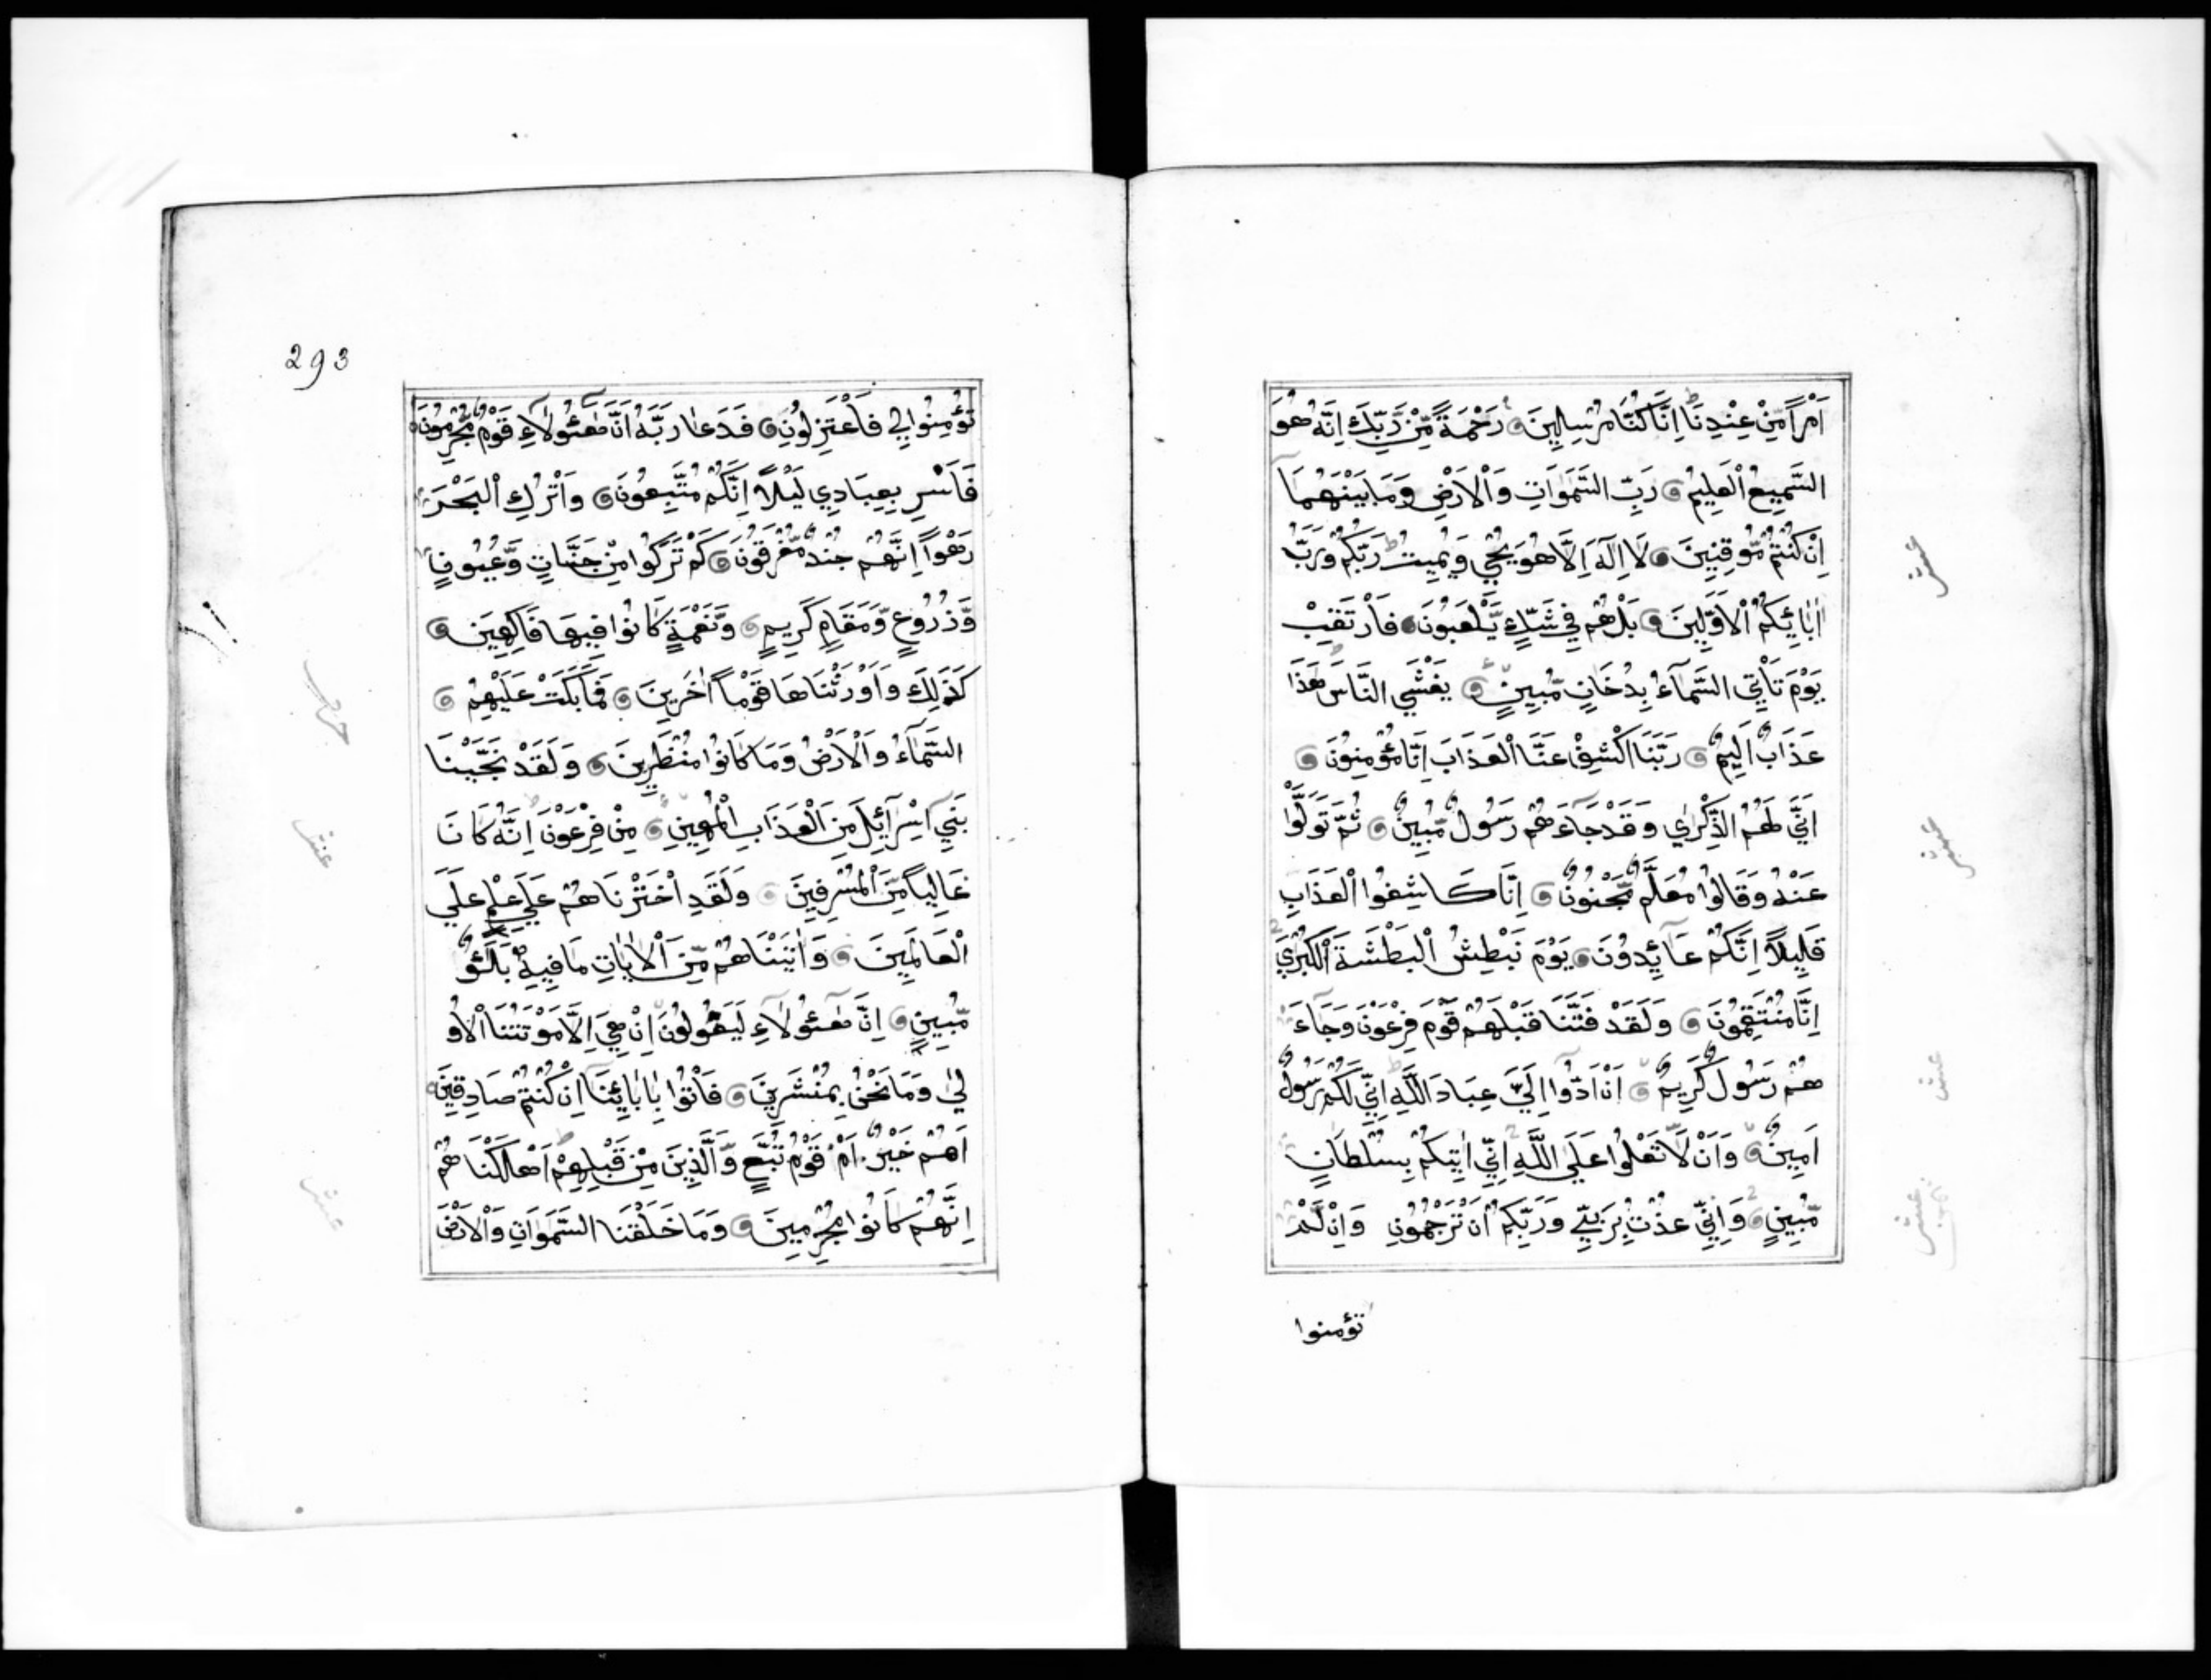 اَمْراً مِّنْ عِنْدِنَا اِنَّا كُنَّا مُرْسِلِينَ رَحْمَةً مِّنْ رَّبِّكَ اِنَّهُ هُوَ
السَّمِيعُ الْعَلِيمُ رَبِّ السَّمَوَاتِ وَالْاَرْضِ وَمَا بَيْنَهُمَا
اِنْ كُنْتُمْ مُّوقِنِينَ لَا اِلَهَ اِلَّا هُوَ يُحْيِ وَيُمِيتُ رَبُّكُمْ وَرَبُّ
اٰبَائِكُمُ الْاَوَّلِينَ بَلْ هُمْ فِي شَكٍّ يَّلْعَبُونَ فَارْتَقِبْ
يَوْمَ تَأْتِي السَّمَآءُ بِدُخَانٍ مُّبِينٍ يَغْشَي النَّاسَ هَذَا
عَذَابٌ اَلِيمٌ رَبَّنَا اكْشِفْ عَنَّا الْعَذَابَ اِنَّا مُؤْمِنُونَ
اَنَّي لَهُمُ الذِّكْرٰي وَقَدْ جَآءَهُمْ رَسُولٌ مُّبِينٌ ثُمَّ تَوَلَّوْا
عَنْهُ وَقَالُوا مُعَلَّمٌ مَّجْنُونٌ اِنَّا كَاشِفُوا الْعَذَابِ
قَلِيلاً اِنَّكُمْ عَآئِدُونَ يَوْمَ نَبْطِشُ الْبَطْشَةَ الْكُبْرَيَ
اِنَّا مُنْتَقِمُونَ وَلَقَدْ فَتَنَّا قَبْلَهُمْ قَوْمَ فِرْعَوْنَ وَجَآءَ
هُمْ رَسُولٌ كَرِيمٌ اَنْ اَدُّوا اِلَيَّ عِبَادَ اللَّهِ اِنِّي لَكُمْ رَسُولٌ
اَمِينٌ وَاَنْ لَّا تَعْلُوا عَلَي اللَّهِ اِنِّي اٰتِيكُمْ بِسُلْطَانٍ
مُّبِينٍ وَاِنِّي عُذْتُ بِرَبِّي وَرَبِّكُمْ اَنْ تَرْجُمُونِ وَاِنْ لَّمْ
تؤمنوا
عشر
عشر
عشر
عشر
293
تُؤْمِنُوا لِي فَاعْتَزِلُونِ فَدَعَا رَبَّهُ اَنَّ هَٰٓئُولَآءِ قَوْمٌ مُّجْرِمُونَ
فَاَسْرِ بِعِبَادِي لَيْلاً اِنَّكُمْ مُّتَّبَعُونَ وَاتْرُكِ الْبَحْرَ
رَهْواً اِنَّهُمْ جُنْدٌ مُّغْرَقُونَ كَمْ تَرَكُوا مِنْ جَنَّاتٍ وَّعُيُونٍ
وَّذُرُوعٍ وَّمَقَامٍ كَرِيمٍ وَّنَعْمَةٍ كَانُوا فِيهَا فَاكِهِينَ
كَذَلِكَ وَاَوْرَثْنَاهَا قَوْماً اٰخَرِينَ فَمَا بَكَتْ عَلَيْهِمُ
السَّمَآءُ وَالْاَرْضُ وَمَا كَانُوا مُنْظَرِينَ وَلَقَدْ نَجَّيْنَا
بَنِي اِسْرَآئِلَ مِنَ الْعَذَابِ الْمُهِينِ مِنْ فِرْعَوْنَ اِنَّهُ كَانَ
عَالِياً مِّنَ الْمُسْرِفِينَ وَلَقَدِ اخْتَرْنَاهُمْ عَلَي عِلْمٍ عَلَي
الْعَالَمِينَ وَاٰتَيْنَاهُمْ مِّنَ الْاٰيَاتِ مَا فِيهِ بَلَٰٓئُوٌ
مُّبِينٌ اِنَّ هَٰٓئُولَآءِ لَيَقُولُونَ اِنْ هِيَ اِلَّا مَوْتَتُنَا الْاُو
لَي وَمَا نَحْنُ بِمُنْشَرِينَ فَأْتُوا بِاٰبَائِنَآ اِنْ كُنْتُمْ صَادِقِينَ
اَهُمْ خَيْرٌ اَمْ قَوْمُ تُبَّعٍ وَّالَّذِينَ مِنْ قَبْلِهِمْ اَهْلَكْنَاهُمْ
اِنَّهُمْ كَانُوا مُجْرِمِينَ وَمَا خَلَقْنَا السَّمَوَاتِ وَالْاَرْضَ
عشر
عشر